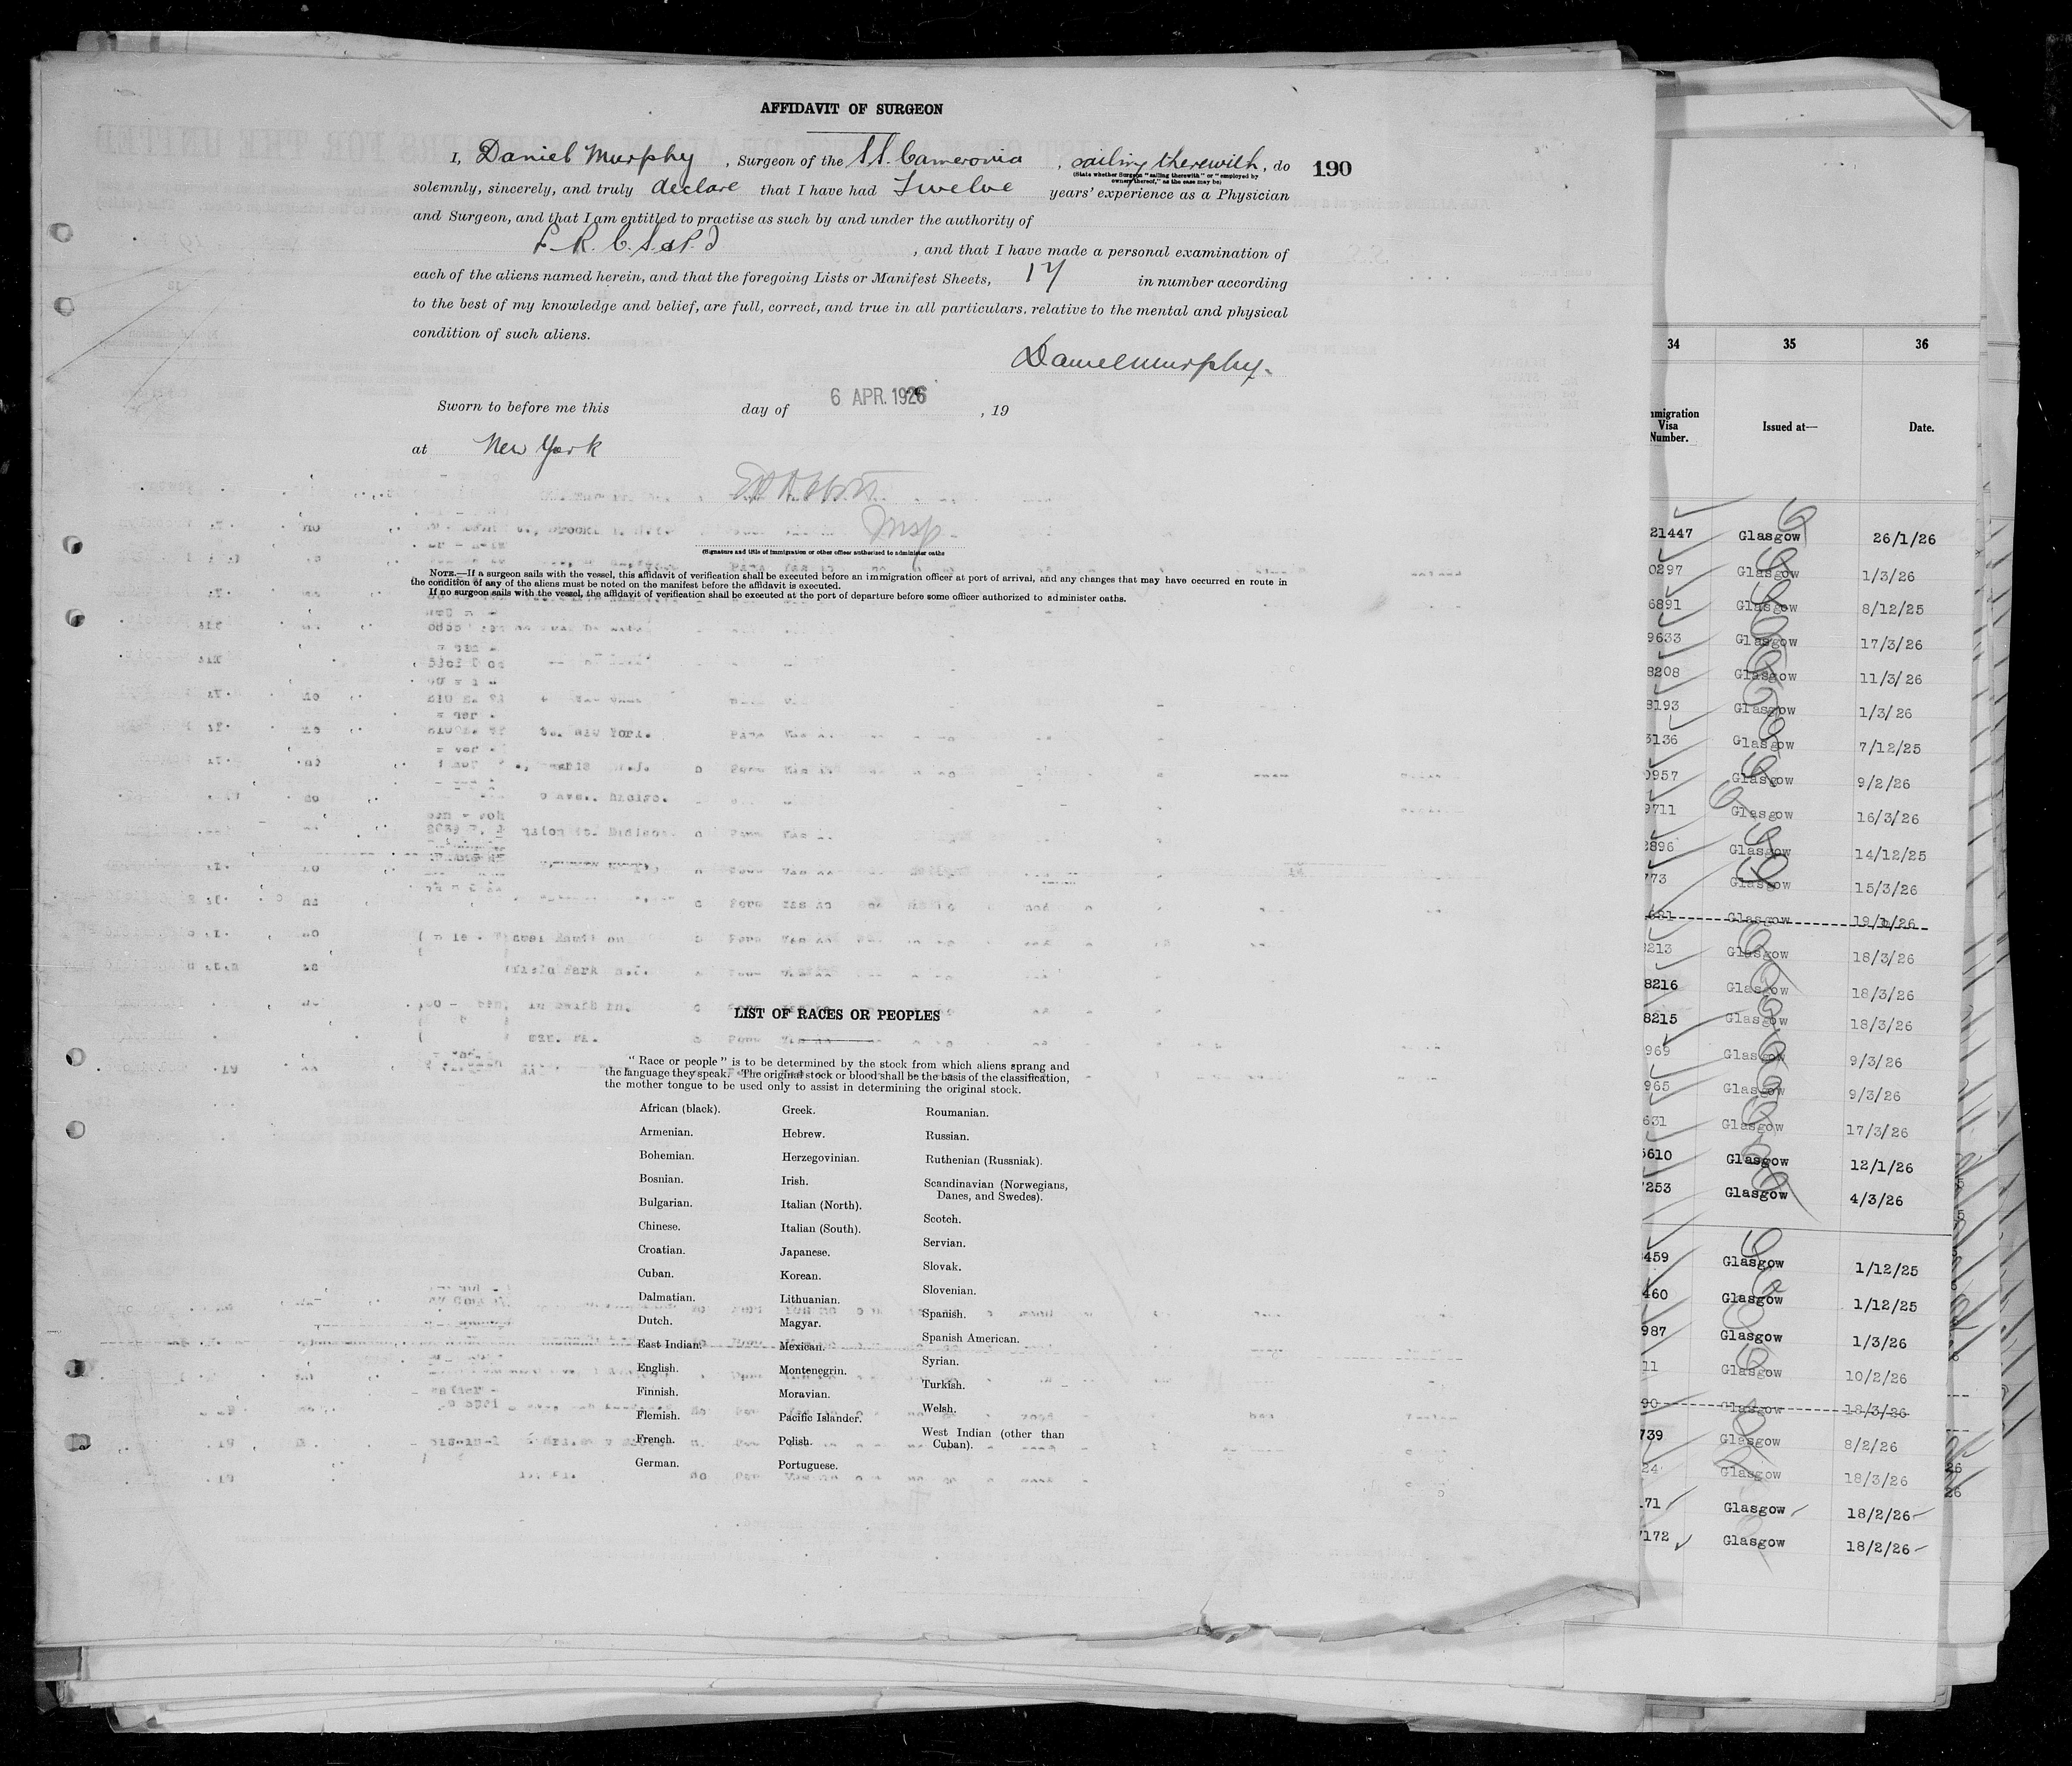 AFFIDAVIT OF SURGEON
I, Daniel Murphy, Surgeon of the S.S. Cameronia, sailing therewith, do
(State whether Surgeon "sailing therewith" or "employed by
owners thereof," as the case may be)
190
solemnly, sincerely, and truly declare that I have had Twelve years' experience as a Physician
and Surgeon, and that I am entitled to practise as such by and under the authority of
, and that I have made a personal examination of
each of the aliens named herein, and that the foregoing Lists or Manifest Sheets, 17 in number according
to the best of my knowledge and belief, are full, correct, and true in all particulars, relative to the mental and physical
condition of such aliens.
Daniel Murphy.
Sworn to before me this day of 6 APR. 1926, 19
at New York
(Signature and title of immigration or other officer authorized to administer oaths
NOTE.—If a surgeon sails with the vessel, this affidavit of verification shall be executed before an immigration officer at port of arrival, and any changes that may have occurred en route in
the condition of any of the aliens must be noted on the manifest before the affidavit is executed.
If no surgeon sails with the vessel, the affidavit of verification shall be executed at the port of departure before some officer authorized to administer oaths.
LIST OF RACES OR PEOPLES
"Race or people" is to be determined by the stock from which aliens sprang and
the language they speak. The original stock or blood shall be the basis of the classification,
the mother tongue to be used only to assist in determining the original stock.
African (black).
Armenian.
Bohemian.
Bosnian.
Bulgarian.
Chinese.
Croatian.
Cuban.
Dalmatian.
Dutch.
East Indian.
English.
Finnish.
Flemish.
French.
German.
Greek.
Hebrew.
Herzegovinian.
Irish.
Italian (North).
Italian (South).
Japanese.
Korean.
Lithuanian.
Magyar.
Mexican.
Montenegrin.
Moravian.
Pacific Islander.
Polish.
Portuguese.
Roumanian.
Russian.
Ruthenian (Russniak).
Scandinavian (Norwegians,
Danes, and Swedes).
Scotch.
Servian.
Slovak.
Slovenian.
Spanish.
Spanish American.
Syrian.
Turkish.
Welsh.
West Indian (other than
Cuban).
34 35 36
mmigration
Visa
Number.
Issued at—
Date.
21447 Glasgow 26/1/26
0297 Glasgow 1/3/26
6891 Glasgow 8/12/25
9633 Glasgow 17/3/26
8208 Glasgow 11/3/26
8193 Glasgow 1/3/26
3136 Glasgow 7/12/25
0957 Glasgow 9/2/26
9711 Glasgow 16/3/26
2896 Glasgow 14/12/25
773 Glasgow 15/3/26
Glasgow 19/1/26
8213 Glasgow 18/3/26
8216 Glasgow 18/3/26
8215 Glasgow 18/3/26
969 Glasgow 9/3/26
965 Glasgow 9/3/26
631 Glasgow 17/3/26
5610 Glasgow 12/1/26
7253 Glasgow 4/3/26
459 Glasgow 1/12/25
460 Glasgow 1/12/25
987 Glasgow 1/3/26
11 Glasgow 10/2/26
90 Glasgow 18/3/26
739 Glasgow 8/2/26
24 Glasgow 18/3/26
171 Glasgow 18/2/26
7172 Glasgow 18/2/26